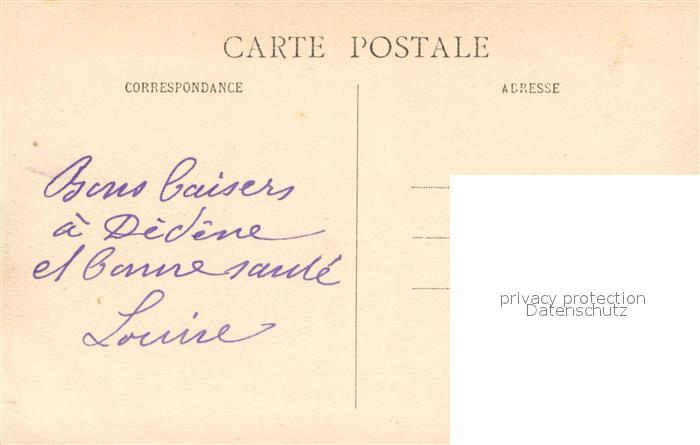 CARTE POSTALE
CORRESPONDANCE
ADRESSE
Bons baisers
à Dédène
et bonne santé
Louise
privacy protection
Datenschutz